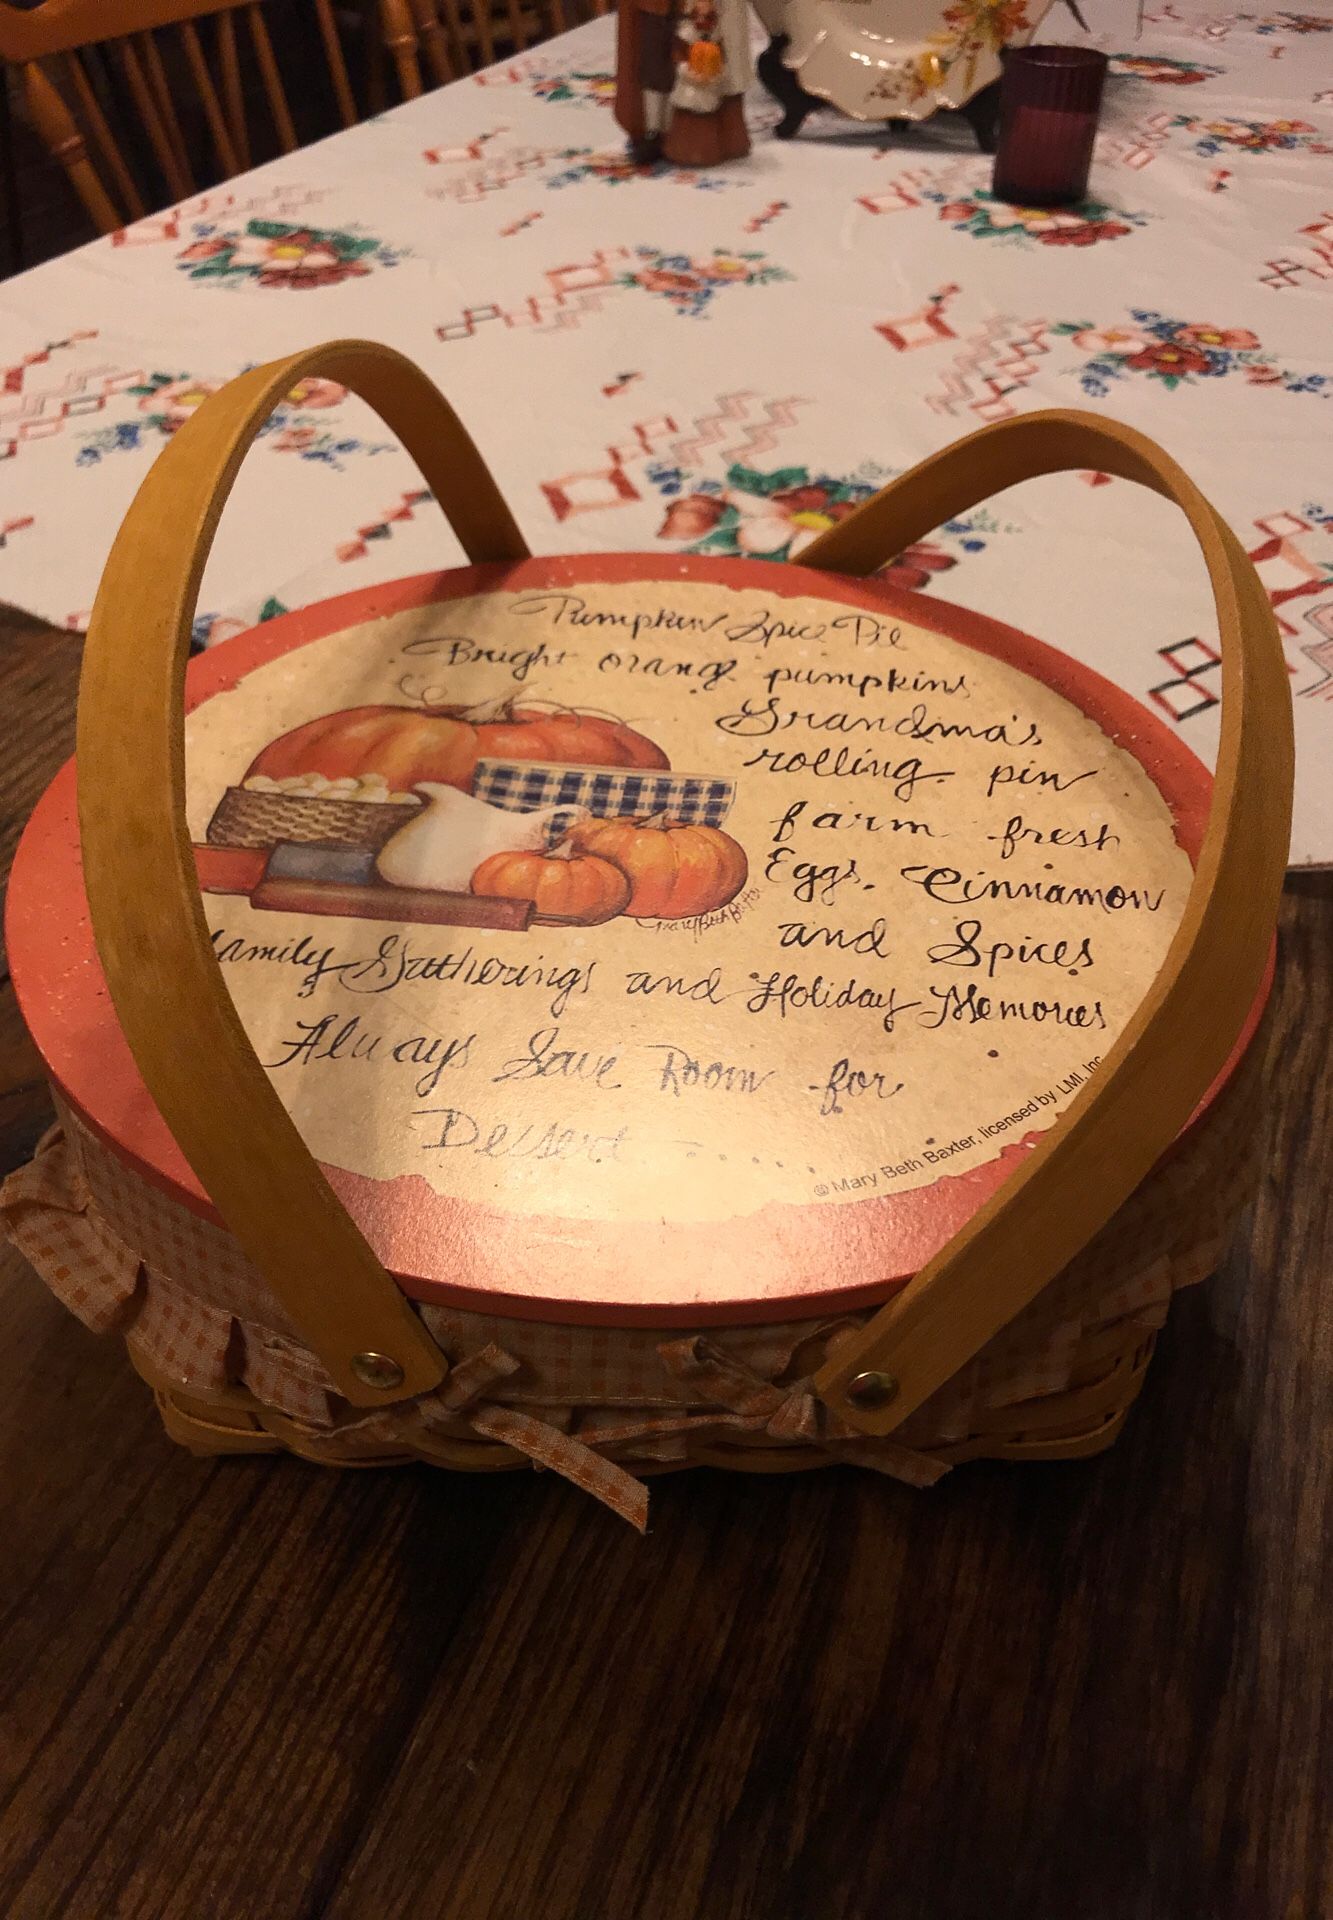 Pumpkin Spice Pie
Bright orange pumpkins
Grandma's
rolling pin
farm fresh
Eggs. Cinnamon
and Spices
family Gatherings and Holiday Memories
Always Save Room for
Dessert ......
Mary Beth Baxter
© Mary Beth Baxter, licensed by LMI, Inc